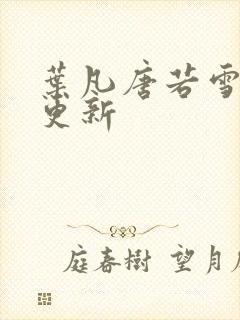 葉凡唐若雪
更新
庭春樹 望月